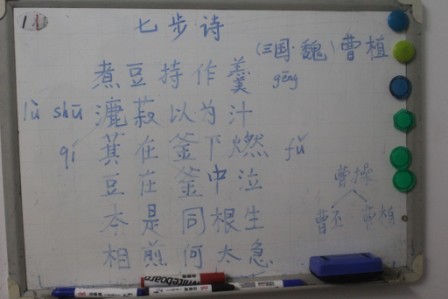 七步诗
(三国·魏) 曹植
煮豆持作羹 gēng
lù shū 漉菽以为汁
qí 萁在釜下燃 fǔ
豆在釜中泣
本是同根生
相煎何太急
曹操
曹丕 曹植
Whiteboard